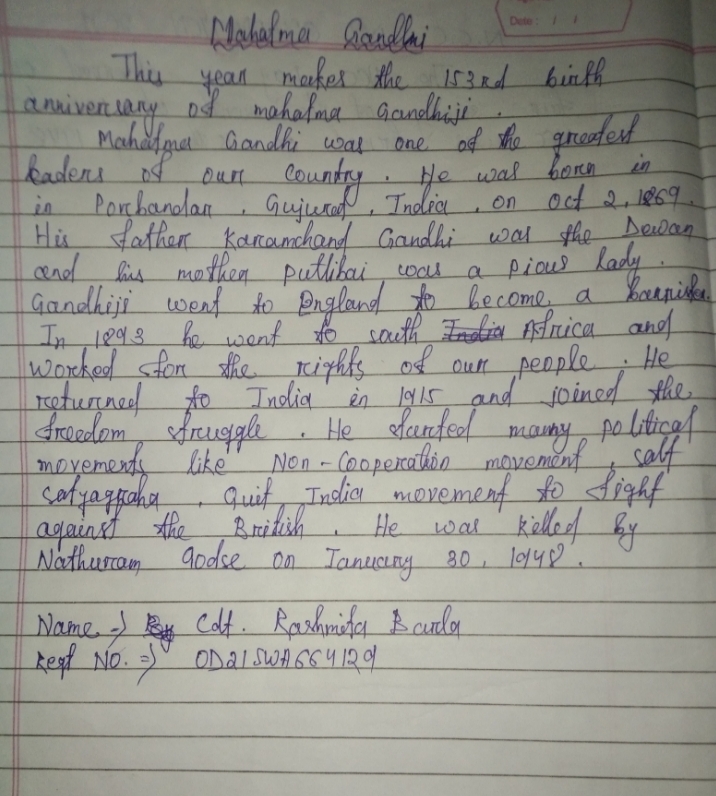 Date: / /
Mahatma Gandhi
This year makes the 153rd birth
anniversary of mahatma Gandhiji.
Mahatma Gandhi was one of the greatest
leaders of our country. He was born in
in Porbandar, Gujurat, India, on Oct 2, 1869.
His father Karamchand Gandhi was the Dewan
and his mother Putlibai was a pious lady.
Gandhiji went to England to become a barrister.
In 1893 he went to south India Africa and
worked for the rights of our people. He
returned to India in 1915 and joined the
freedom struggle. He started many political
movements like Non-Cooperation movement, salt
satyagraha, Quit India movement to fight
against the British. He was killed by
Nathurram Godse on January 30, 1948.
Name → Cdt. Rashmita Barla
Regt No. ⇒ OD21SWA664129